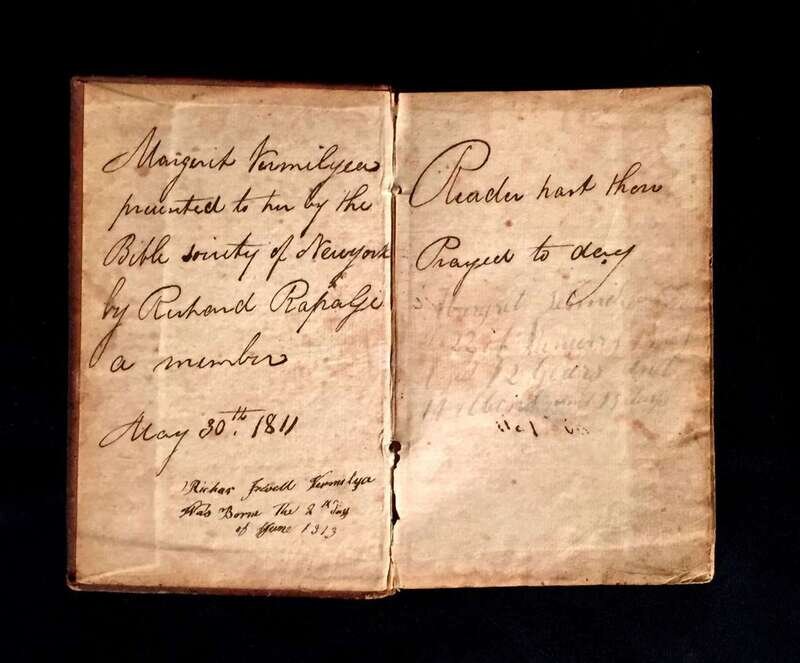 Margerit Vermilyea
presented to her by the
Bible society of Newyork
by Richard Rapalje
a member
May 30th. 1811
Richar Jewell Vermilya
Was Borne The 2th Day
of June 1313
Reader hast thou
Prayed to day
Margrit
22 of January
12 Years and
and 13 days